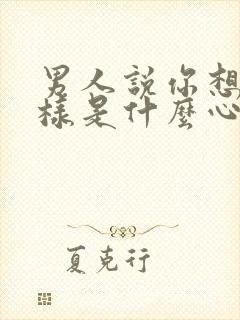 男人說你想
樣是什麼心
夏克行